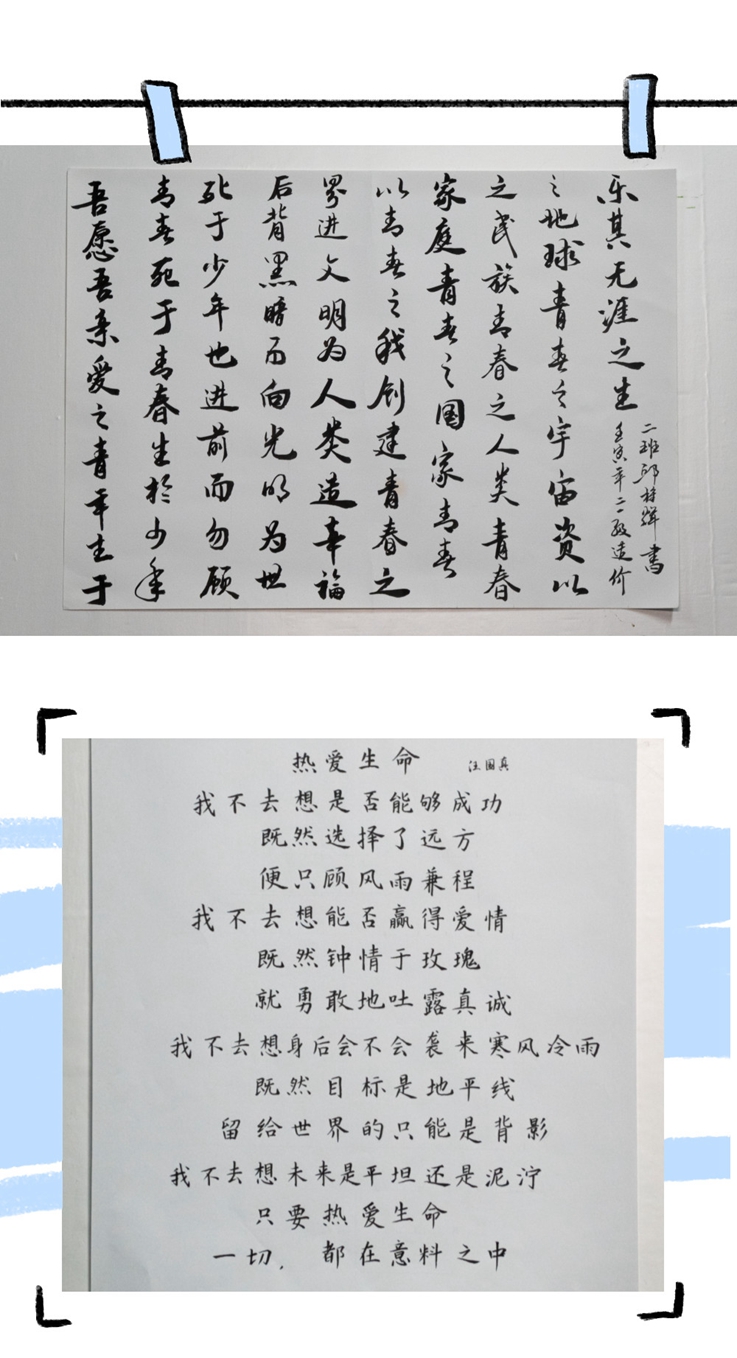 吾愿吾亲爱之青年生于
青春死于青春生於少年
死于少年也进前而勿顾
后背黑暗而向光明为世
界进文明为人类造幸福
以青春之我创建青春之
家庭青春之国家青春
之民族青春之人类青春
之地球青春之宇宙资以
乐其无涯之生
壬寅年二〇级造价
二班邱辉書
热爱生命 汪国真
我不去想是否能够成功
既然选择了远方
便只顾风雨兼程
我不去想能否赢得爱情
既然钟情于玫瑰
就勇敢地吐露真诚
我不去想身后会不会袭来寒风冷雨
既然目标是地平线
留给世界的只能是背影
我不去想未来是平坦还是泥泞
只要热爱生命
一切，都在意料之中